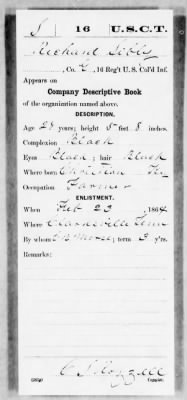 S | 16 | U.S.C.T.
Richard Sibly
, Co. C, 16 Reg't U. S. Col'd Inf.
Appears on
Company Descriptive Book
of the organization named above.
DESCRIPTION.
Age 28 years; height 5 feet 8 inches.
Complexion Black
Eyes Black; hair Black
Where born Christian Ky
Occupation Farmer
ENLISTMENT.
When Feb 23, 1864
Where Clarksville Tenn
By whom Morse; term 3 y'rs.
Remarks:
Copyist.